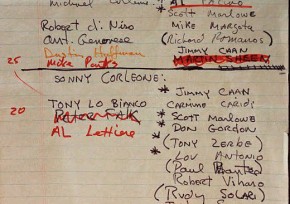 Michael
AL PACINO
Scott Marlowe
Robert di Niro
Mike Margota
Ant. Genovese
(Richard Romanos)
Dustin Hoffman
JIMMY CAAN
25
MARTIN SHEEN
SONNY CORLEONE:
* JIMMY CAAN
20
TONY LO BIANCO
CARMINE CARIDI
PETER FALK
* Scott Marlowe
AL Lettieri
* DON GORDON
* (TONY ZERBE)
LOU ANTONIO
(Paul
Robert Viharo
(RUDY SOLARI